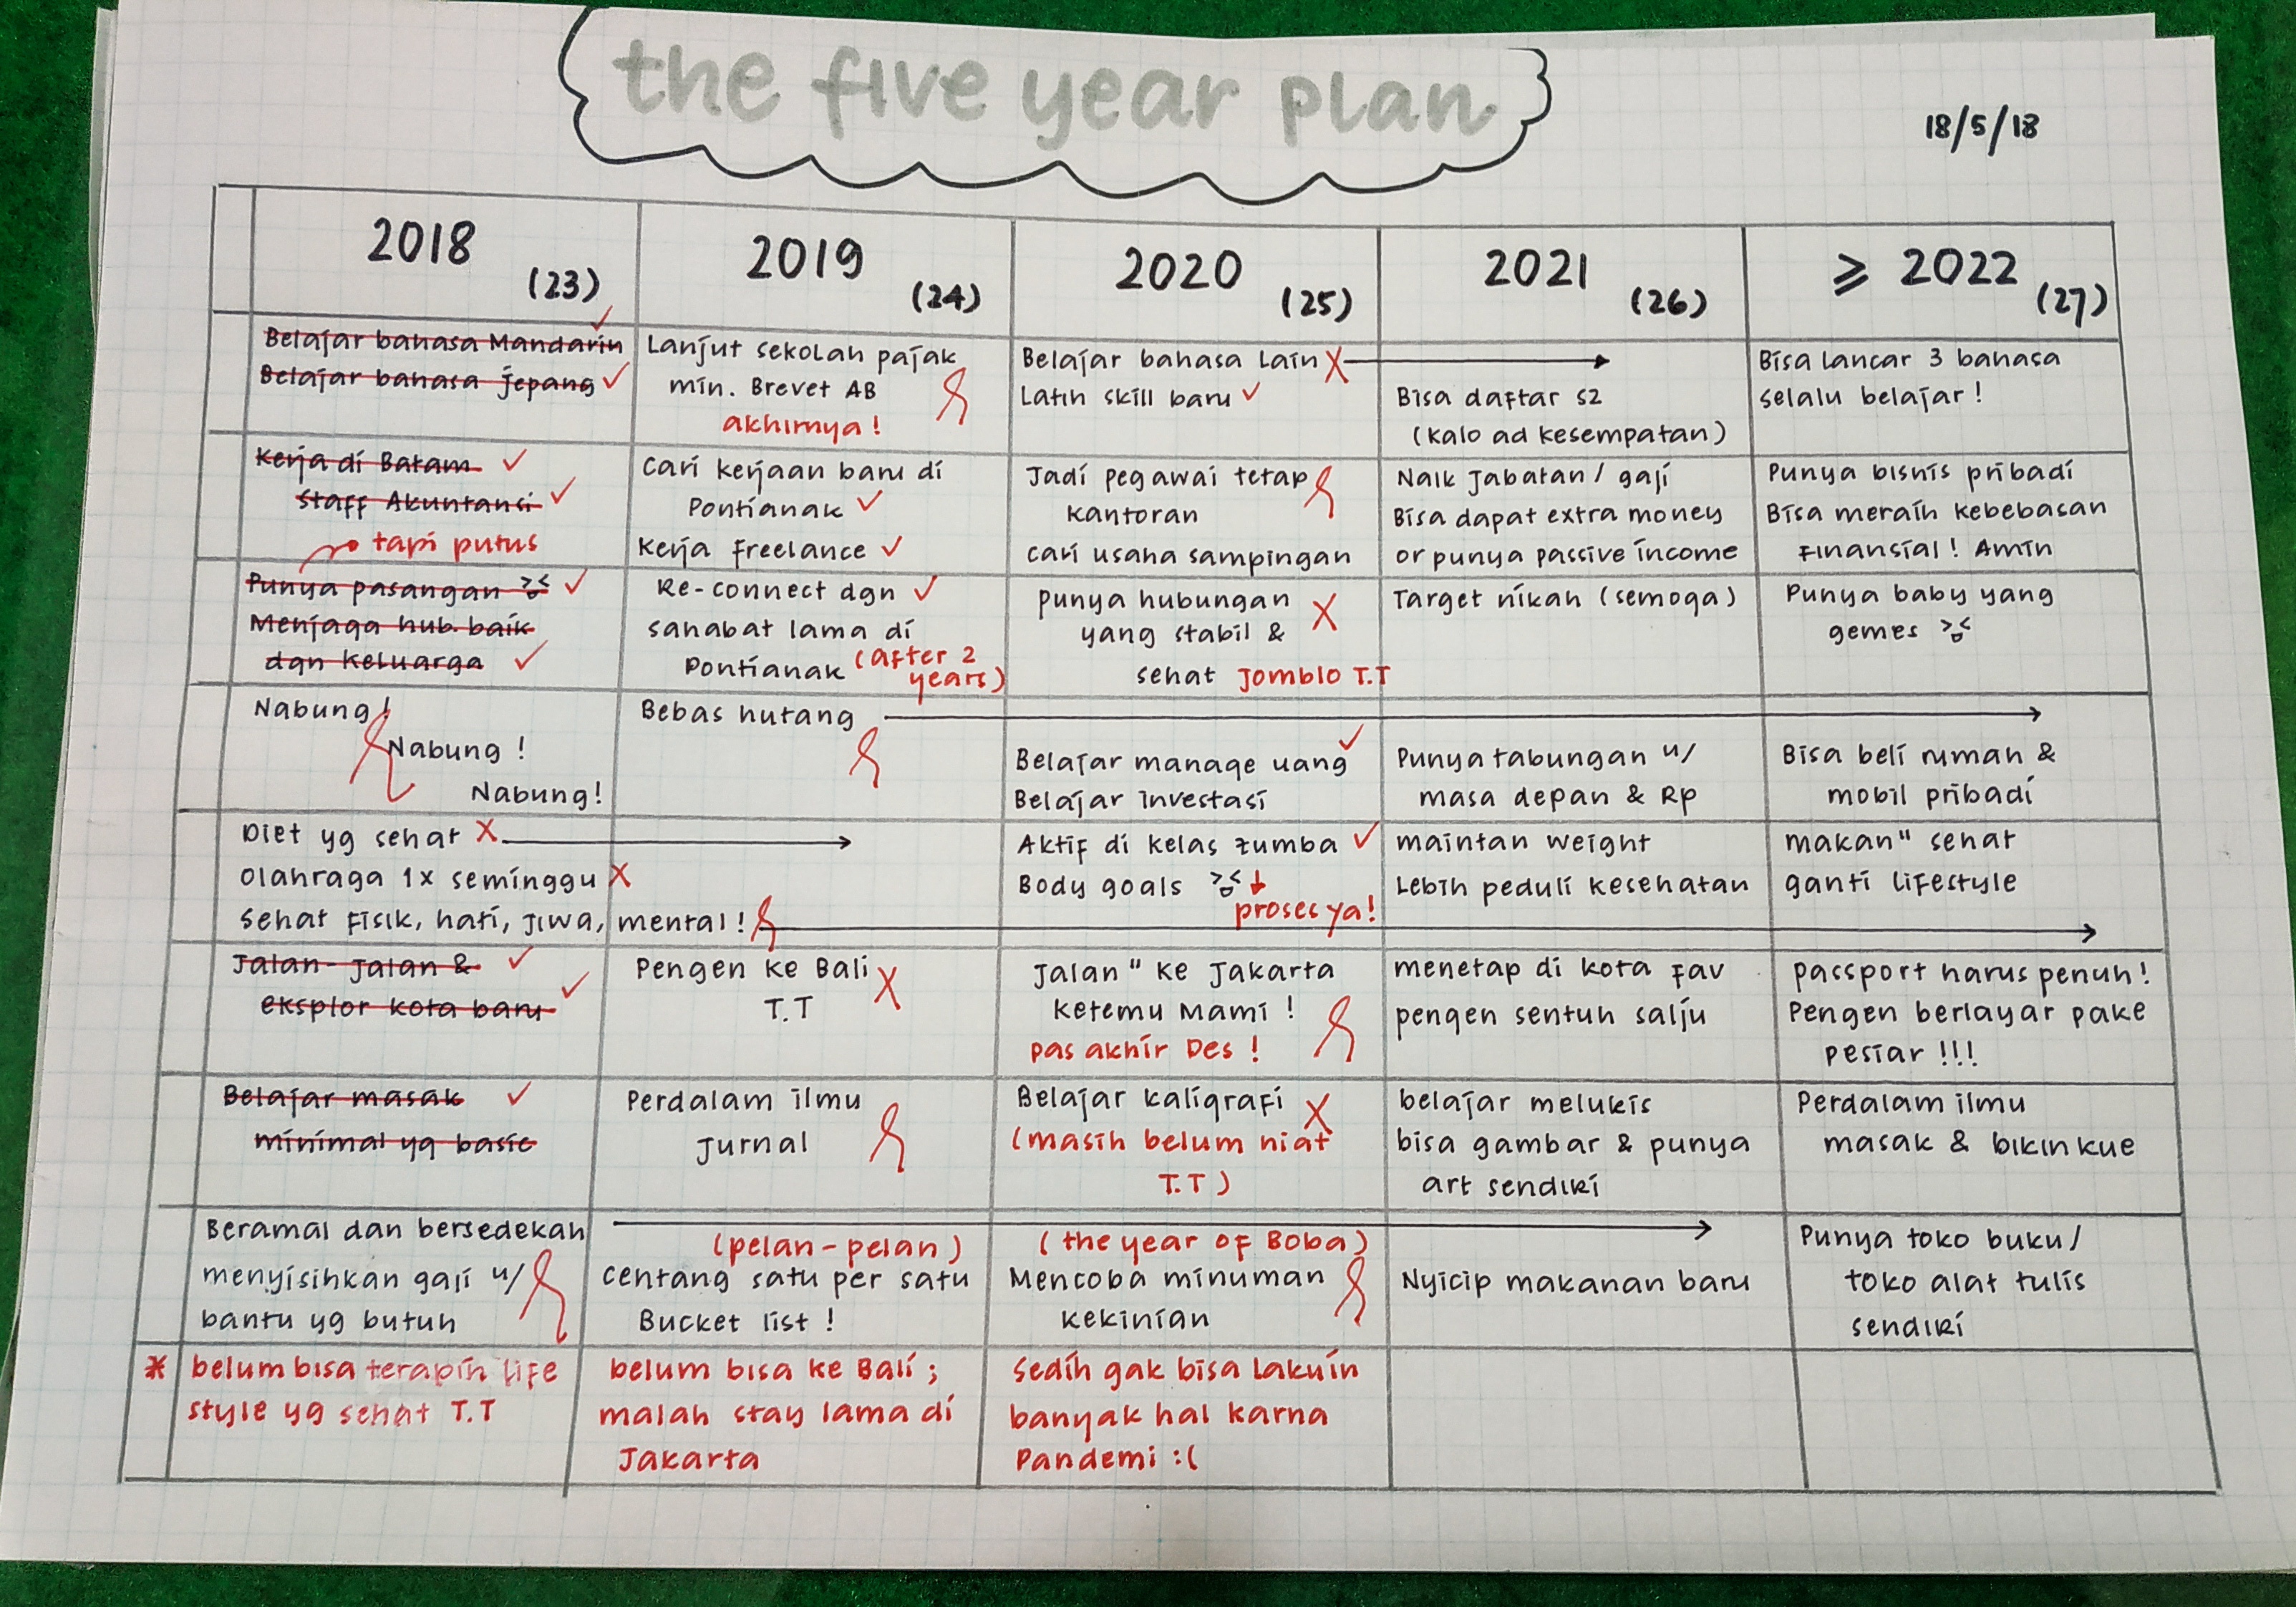 the five year plan
18/5/18
2018 (23)
2019 (24)
2020 (25)
2021 (26)
≥ 2022 (27)
Belajar bahasa Mandarin
Belajar bahasa jepang
Lanjut sekolah pajak
min. Brevet AB
akhirnya !
Belajar bahasa Lain
Latih skill baru
Bisa daftar S2
(kalo ad kesempatan)
Bisa lancar 3 bahasa
selalu belajar !
Kerja di Batam
Staff Akuntansi
tapi putus
cari kerjaan baru di
Pontianak
Kerja freelance
Jadi pegawai tetap
kantoran
cari usaha sampingan
Naik Jabatan / gaji
Bisa dapat extra money
or punya passive income
Punya bisnis pribadi
Bisa meraih kebebasan
Finansial ! Amin
Punya pasangan
Menjaga hub. baik
dgn keluarga
Re-connect dgn
sahabat lama di
Pontianak (after 2
years)
Punya hubungan
yang stabil &
sehat Jomblo T.T
Target nikah (semoga)
Punya baby yang
gemes
Nabung !
Nabung !
Nabung!
Bebas hutang
Belajar manage uang
Belajar investasi
Punya tabungan u/
masa depan & Rp
Bisa beli rumah &
mobil pribadi
Diet yg sehat
Olahraga 1x seminggu
Sehat fisik, hati, jiwa, mental !
Aktif di kelas zumba
Body goals
proses ya!
maintan weight
Lebih peduli kesehatan
makan" sehat
ganti lifestyle
Jalan-Jalan &
eksplor kota baru
Pengen ke Bali
T.T
Jalan" ke Jakarta
ketemu Mami !
pas akhir Des !
menetap di kota fav
pengen sentuh salju
passport harus penuh!
Pengen berlayar pake
pesiar !!!
Belajar masak
minimal yg basic
Perdalam ilmu
Jurnal
Belajar kaligrafi
(masih belum niat
T.T)
belajar melukis
bisa gambar & punya
art sendiri
Perdalam ilmu
masak & bikin kue
Beramal dan bersedekah
menyisihkan gaji u/
bantu yg butuh
(pelan-pelan)
centang satu per satu
Bucket list !
(the year of Boba)
Mencoba minuman
kekinian
Nyicip makanan baru
Punya toko buku/
toko alat tulis
sendiri
* belum bisa terapin life
style yg sehat T.T
belum bisa ke Bali ;
malah stay lama di
Jakarta
Sedih gak bisa lakuin
banyak hal karna
Pandemi :(